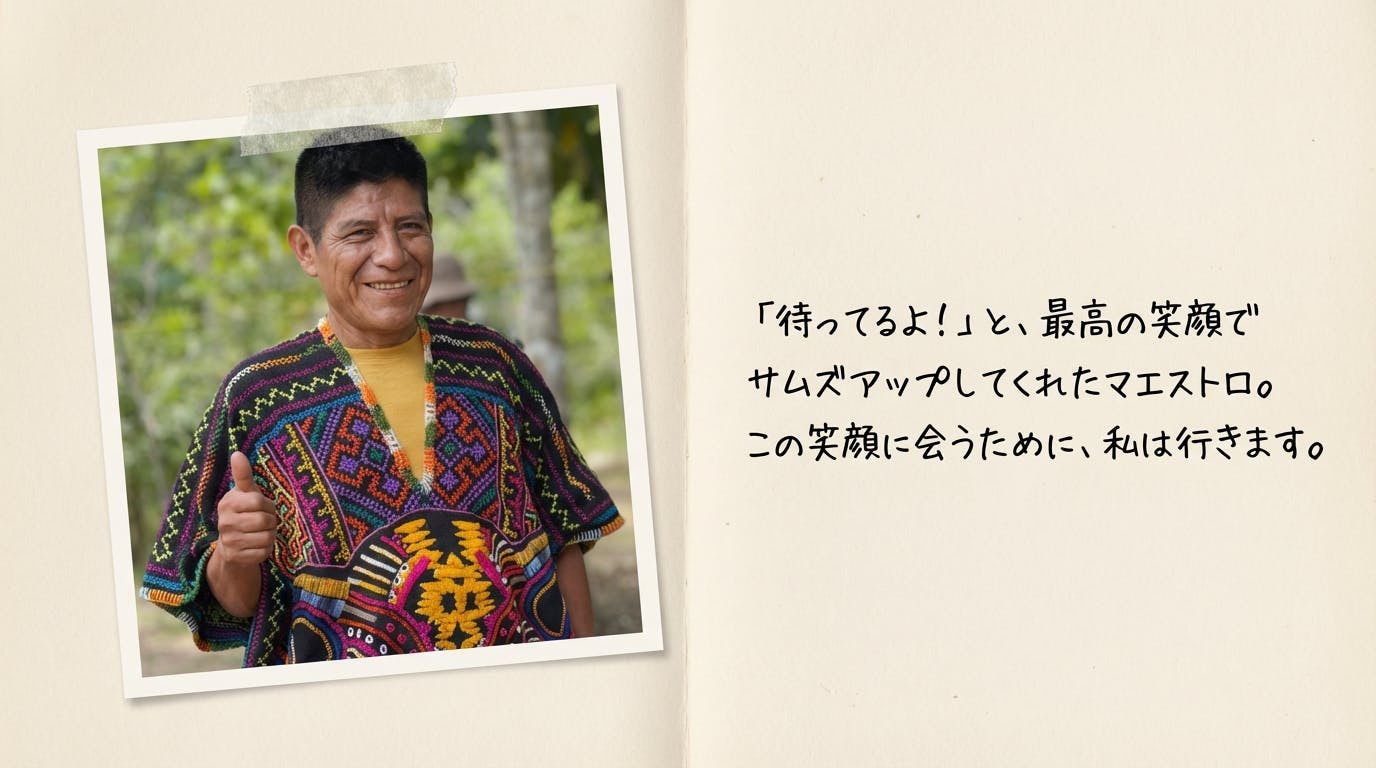 「待ってるよ!」と、最高の笑顔で
サムズアップしてくれたマエストロ。
この笑顔に会うために、私は行きます。